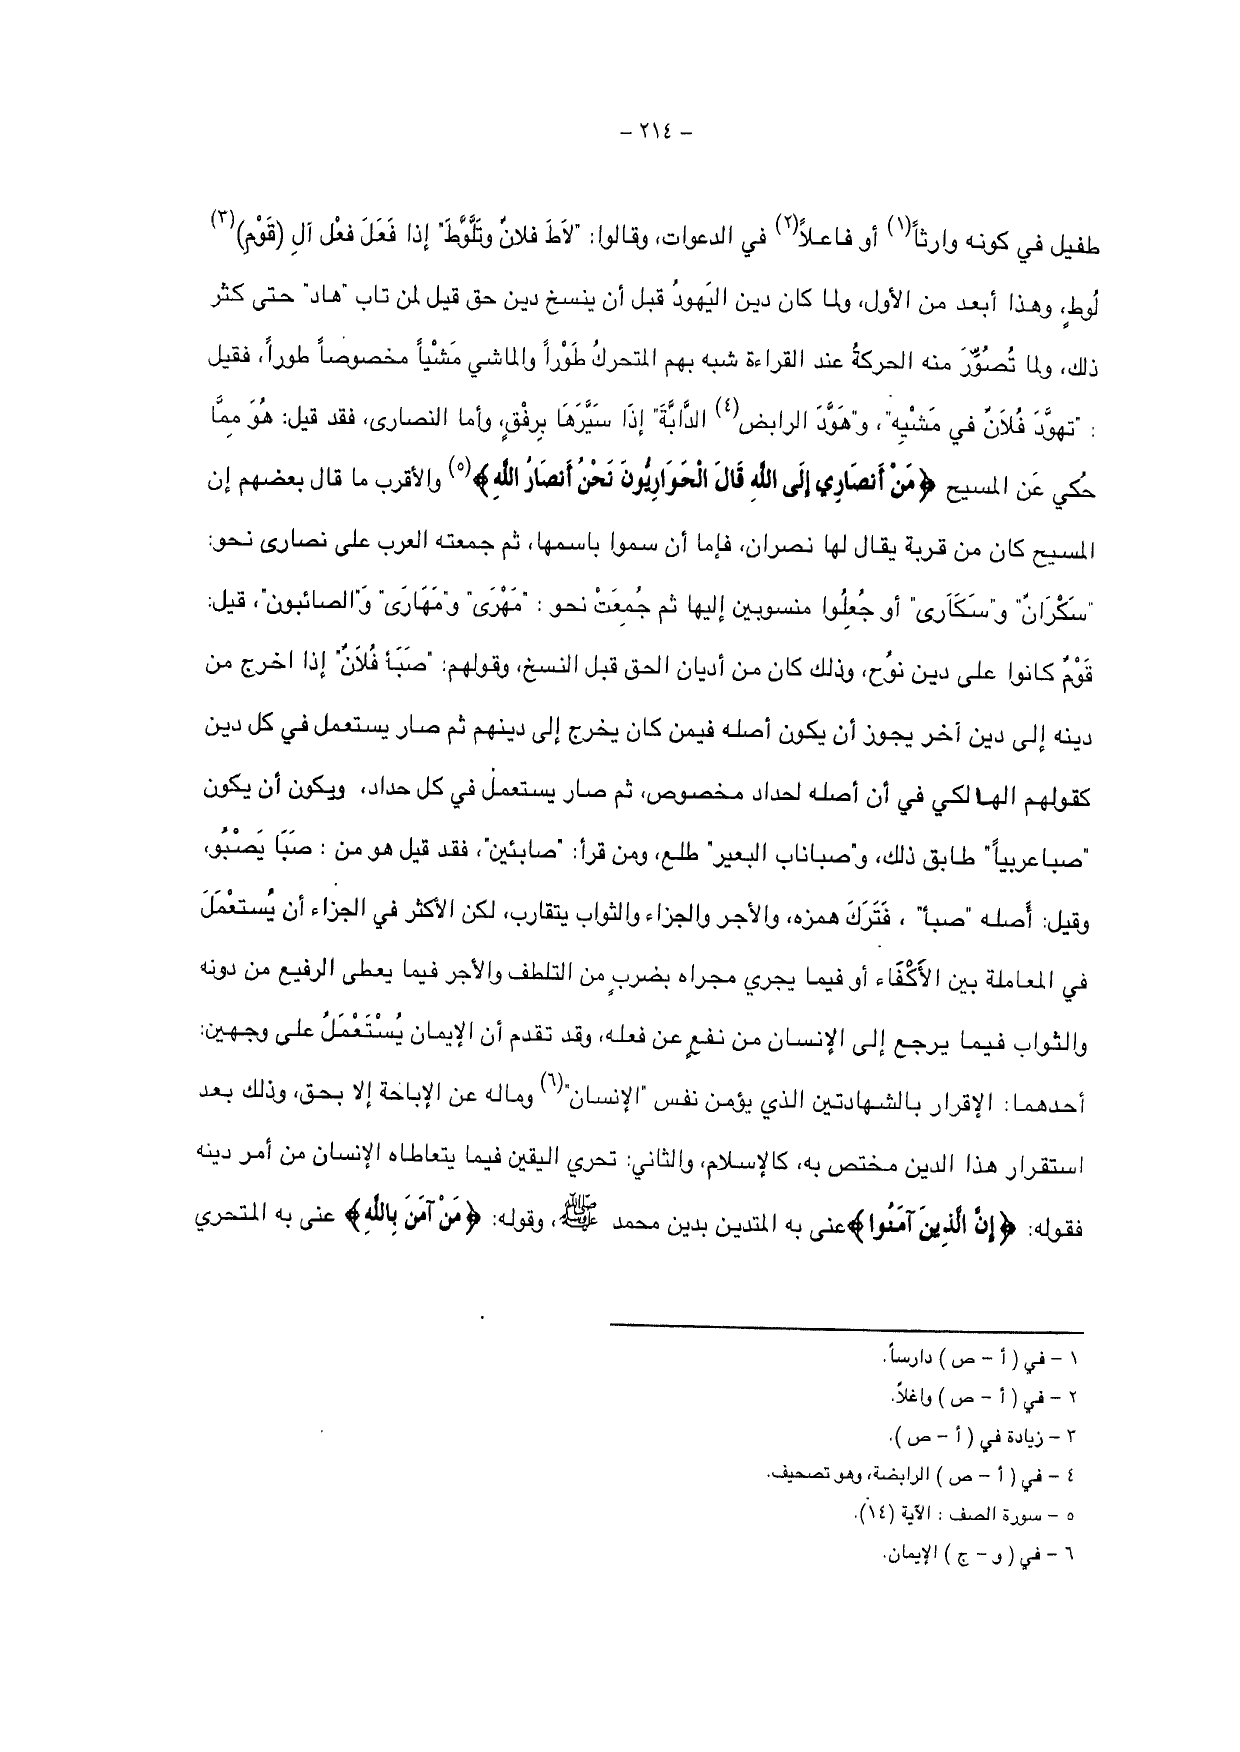 - ٢١٤ -
طفيل في كونه وارثاً(١) أو فاعلاً(٢) في الدعوات، وقالوا: "لاَطَ فلانٌ وتَلَّوَّطَ" إذا فَعَلَ فعْل آلِ (قَوْمِ)(٣)
لُوطٍ، وهذا أبعد من الأول، ولما كان دين اليَهودُ قبل أن ينسخ دين حق قيل لمن تاب "هاد" حتى كثر
ذلك، ولما تُصُوِّرَ منه الحركةُ عند القراءة شبه بهم المتحركُ طَوْراً والماشي مَشْياً مخصوصاً طوراً، فقيل
: "تهوَّدَ فُلاَنٌ في مَشْيِه"، و"هَوَّدَ الرابض(٤) الدَّابَّةَ" إذَا سَيَّرَهَا بِرفْقٍ، وأما النصارى، فقد قيل: هُوَ ممَّا
حُكي عَن المسيح ﴿مَنْ أَنصَارِي إِلَى اللَّه قَالَ الْحَوَارِيُّونَ نَحْنُ أَنصَارُ اللَّهِ﴾(٥) والأقرب ما قال بعضهم إن
المسيح كان من قرية يقال لها نصران، فإما أن سموا باسمها، ثم جمعته العرب على نصارى نحو:
"سَكْرَانٌ" و"سَكَاَرى" أو جُعلُوا منسوبين إليها ثم جُمِعَتْ نحو : "مَهْرَى" و"مَهَارَى" وَ"الصائبون"، قيل:
قَوْمٌ كانوا على دين نوُح، وذلك كان من أديان الحق قبل النسخ، وقولهم: "صَبَأ فُلاَنٌ" إذا اخرج من
دينه إلى دين آخر يجوز أن يكون أصله فيمن كان يخرج إلى دينهم ثم صار يستعمل في كل دين
كقولهم الهالكي في أن أصله لحداد مخصوص، ثم صار يستعمل في كل حداد، ويكون أن يكون
"صبا عربياً" طابق ذلك، و"صباناب البعير" طلع، ومن قرأ: "صابئين"، فقد قيل هو من : صَبَا يَصْبُو،
وقيل: أَصله "صبأ" ، فَتَرَكَ همزه، والأجر والجزاء والثواب يتقارب، لكن الأكثر في الجزاء أن يُستعْمَلَ
في المعاملة بين الأَكْفَاء أو فيما يجري مجراه بضربٍ من التلطف والأجر فيما يعطى الرفيع من دونه
والثواب فيما يرجع إلى الإنسان من نفعٍ عن فعله، وقد تقدم أن الإيمان يُسْتَعْمَلُ على وجهين:
أحدهما: الإقرار بالشهادتين الذي يؤمن نفس "الإنسان"(٦) وماله عن الإباحة إلا بحق، وذلك بعد
استقرار هذا الدين مختص به، كالإسلام، والثاني: تحري اليقين فيما يتعاطاه الإنسان من أمر دينه
فقوله: ﴿إِنَّ الَّذِينَ آمَنُوا﴾عنى به المتدين بدين محمد ﷺ، وقوله: ﴿مَنْ آمَنَ بِاللَّهِ﴾ عنى به المتحري
١ - في ( أ - ص ) دارساً.
٢ - في ( أ - ص ) واغلاً.
٣ - زيادة في ( أ - ص ).
٤ - في ( أ - ص ) الرابضة، وهو تصحيف.
٥ - سورة الصف : الآية (١٤).
٦ - في ( و - ج ) الإيمان.